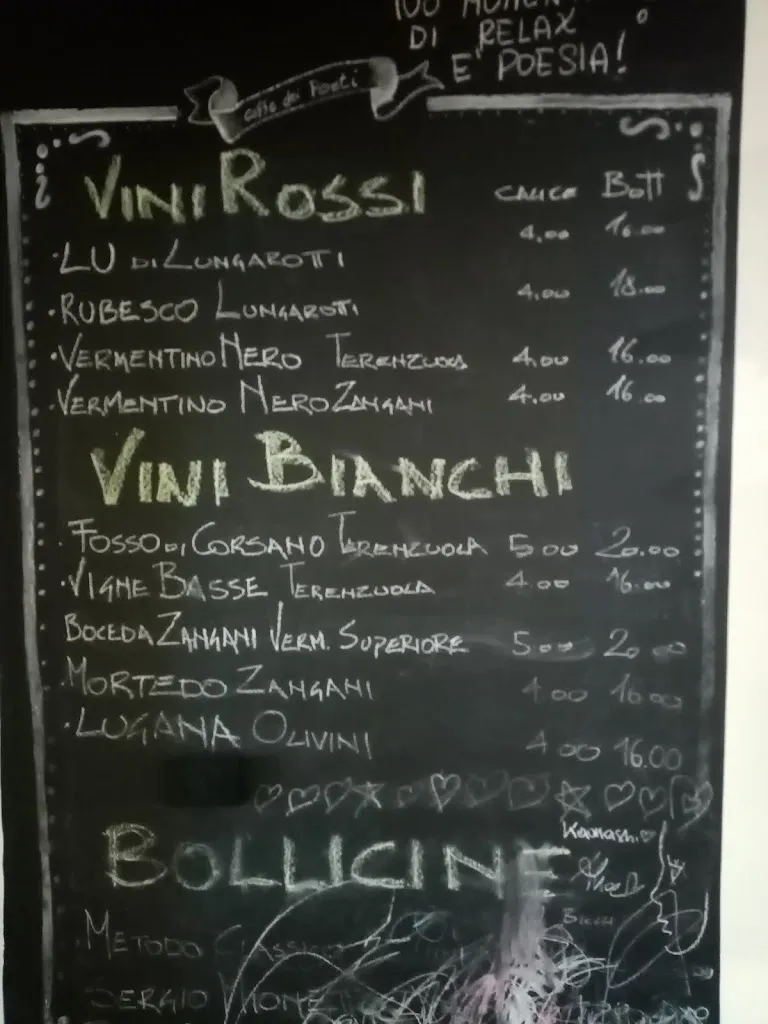 DI RELAX
E' POESIA!
caffe dei Poeti
VINI ROSSI CALICE BOTT
·LU DI LUNGAROTTI 4,00 16.00
·RUBESCO LUNGAROTTI 4,00 18.00
·VERMENTINO NERO TERENZUOLA 4,00 16.00
·VERMENTINO NERO ZANGANI 4,00 16.00
VINI BIANCHI
·FOSSO DI CORSANO TERENZUOLA 5 00 20.00
·VIGNE BASSE TERENZUOLA 4.00 16.00
BOCEDA ZANGANI VERM. SUPERIORE 5 00 20 00
·MORTEDO ZANGANI 4.00 16.00
·LUGANA OLIVINI 4 00 16.00
BOLLICINE
METODO CLASSICO
SERGIO